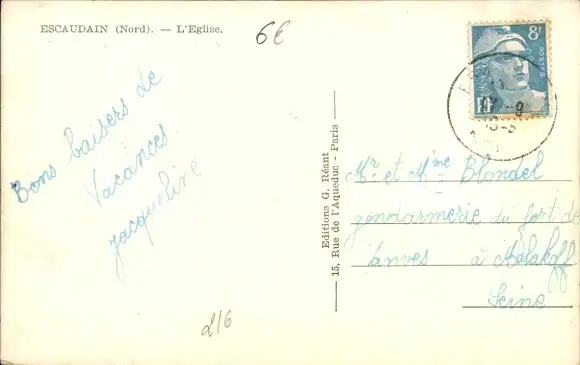 ESCAUDAIN (Nord). — L'Eglise.
6€
8F
Bons baisers de
Vacances
Jacqueline
Editions G. Réant
15, Rue de l'Aqueduc - Paris
Mr et Mme Blondel
gendarmerie du fort de
Vanves à Malakoff
Seine
216